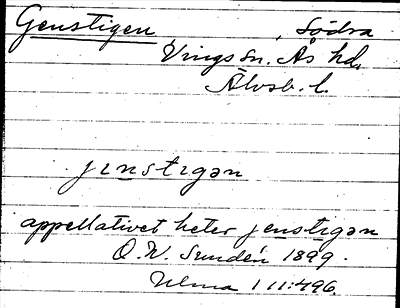 Genstigen, Södra
Vings sn. Ås hd.
Älvsb. l.
jenstıgən
appellativet heter jenstıgən
O. W. Sundén 1899.
Ulma 111:496.